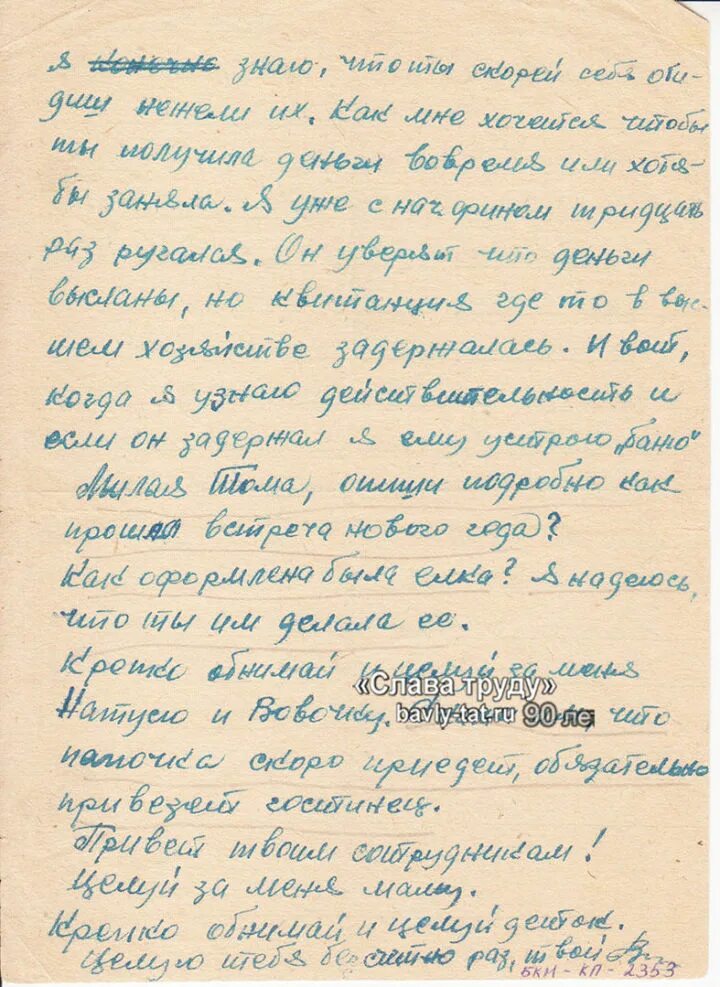 я конечно знаю, что ты скорей себя оби-
диш нежели их. Как мне хочется чтобы
ты получила деньги вовремя или хотя-
бы заняла. Я уже с начфином тридцать
раз ругался. Он уверят что деньги
высланы, но квитанция где то в выс-
шем хозяйстве задержалась. И вот,
когда я узнаю действительность и
если он задержал я ему устрою „баню"
Милая Тома, опиши подробно как
прошла встреча нового года?
Как оформлена была елка? Я надеюсь,
что ты им делала ее.
Крепко обнимай и целуй за меня
«Слава труду»
Натусю и Вовочку. что
bavly-tat.ru 90 лет
папочка скоро приедет, обязательно
привезет гостинец.
Привет твоим сотрудникам!
Целуй за меня маму.
Крепко обнимай и целуй деток.
Целую тебя бессчетно раз, твой
БКМ-КП-2353